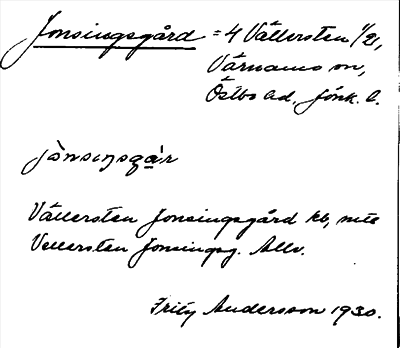 Jonsingsgård = 4 Vällersten 1/21,
Värnamo sn,
Östbo hd, Jönk. l.
jònsiŋsgàr
Vällersten Jonsingsgård kb, mtl
Vellersten Jonsingsg. Allv.
Fritz Andersson 1930.